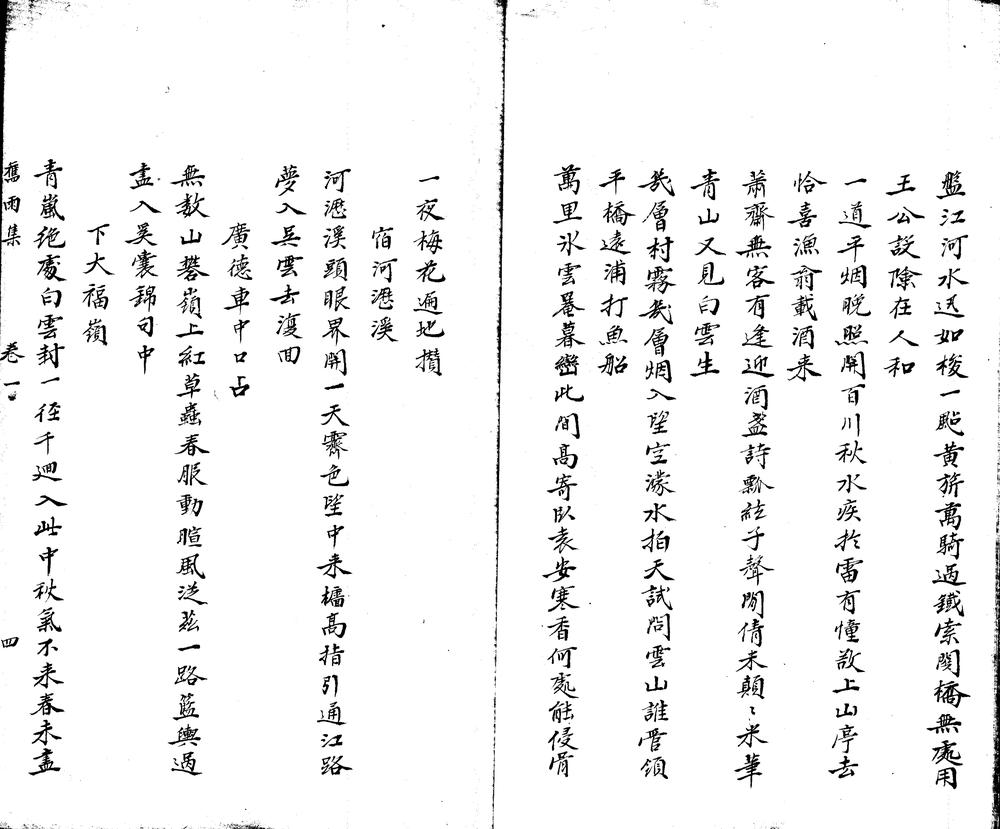 盤江河水迅如梭一點黃旂萬騎過鐵索関橋無處用
王公設險在人和
一道平烟晚照開百川秋水疾扵雷有憧敲上山亭去
恰喜漁翁載酒来
蕭齋無客有逢迎酒盞詩瓢絃子聲閒倩米顛〻米筆
青山又見白雲生
幾層村霧幾層烟入望空濛水拍天試問雲山誰管領
平橋遠浦打魚船
萬里氷雲暑暮巒此間高寄卧袁安寒香何處能侵骨
一夜梅花遍地攢
宿河瀝溪
河瀝溪頭眼界開一天霽色望中来檣高指引通江路
夢入吴雲去復回
廣德車中口占
無数山礬嶺上紅草蟲春服動暄風從兹一路籃輿過
盡入奚囊錦句中
下大福嶺
青嵐絶處白雲封一徑千迴入此中秋氣不来春未盡
舊雨集 卷一 四